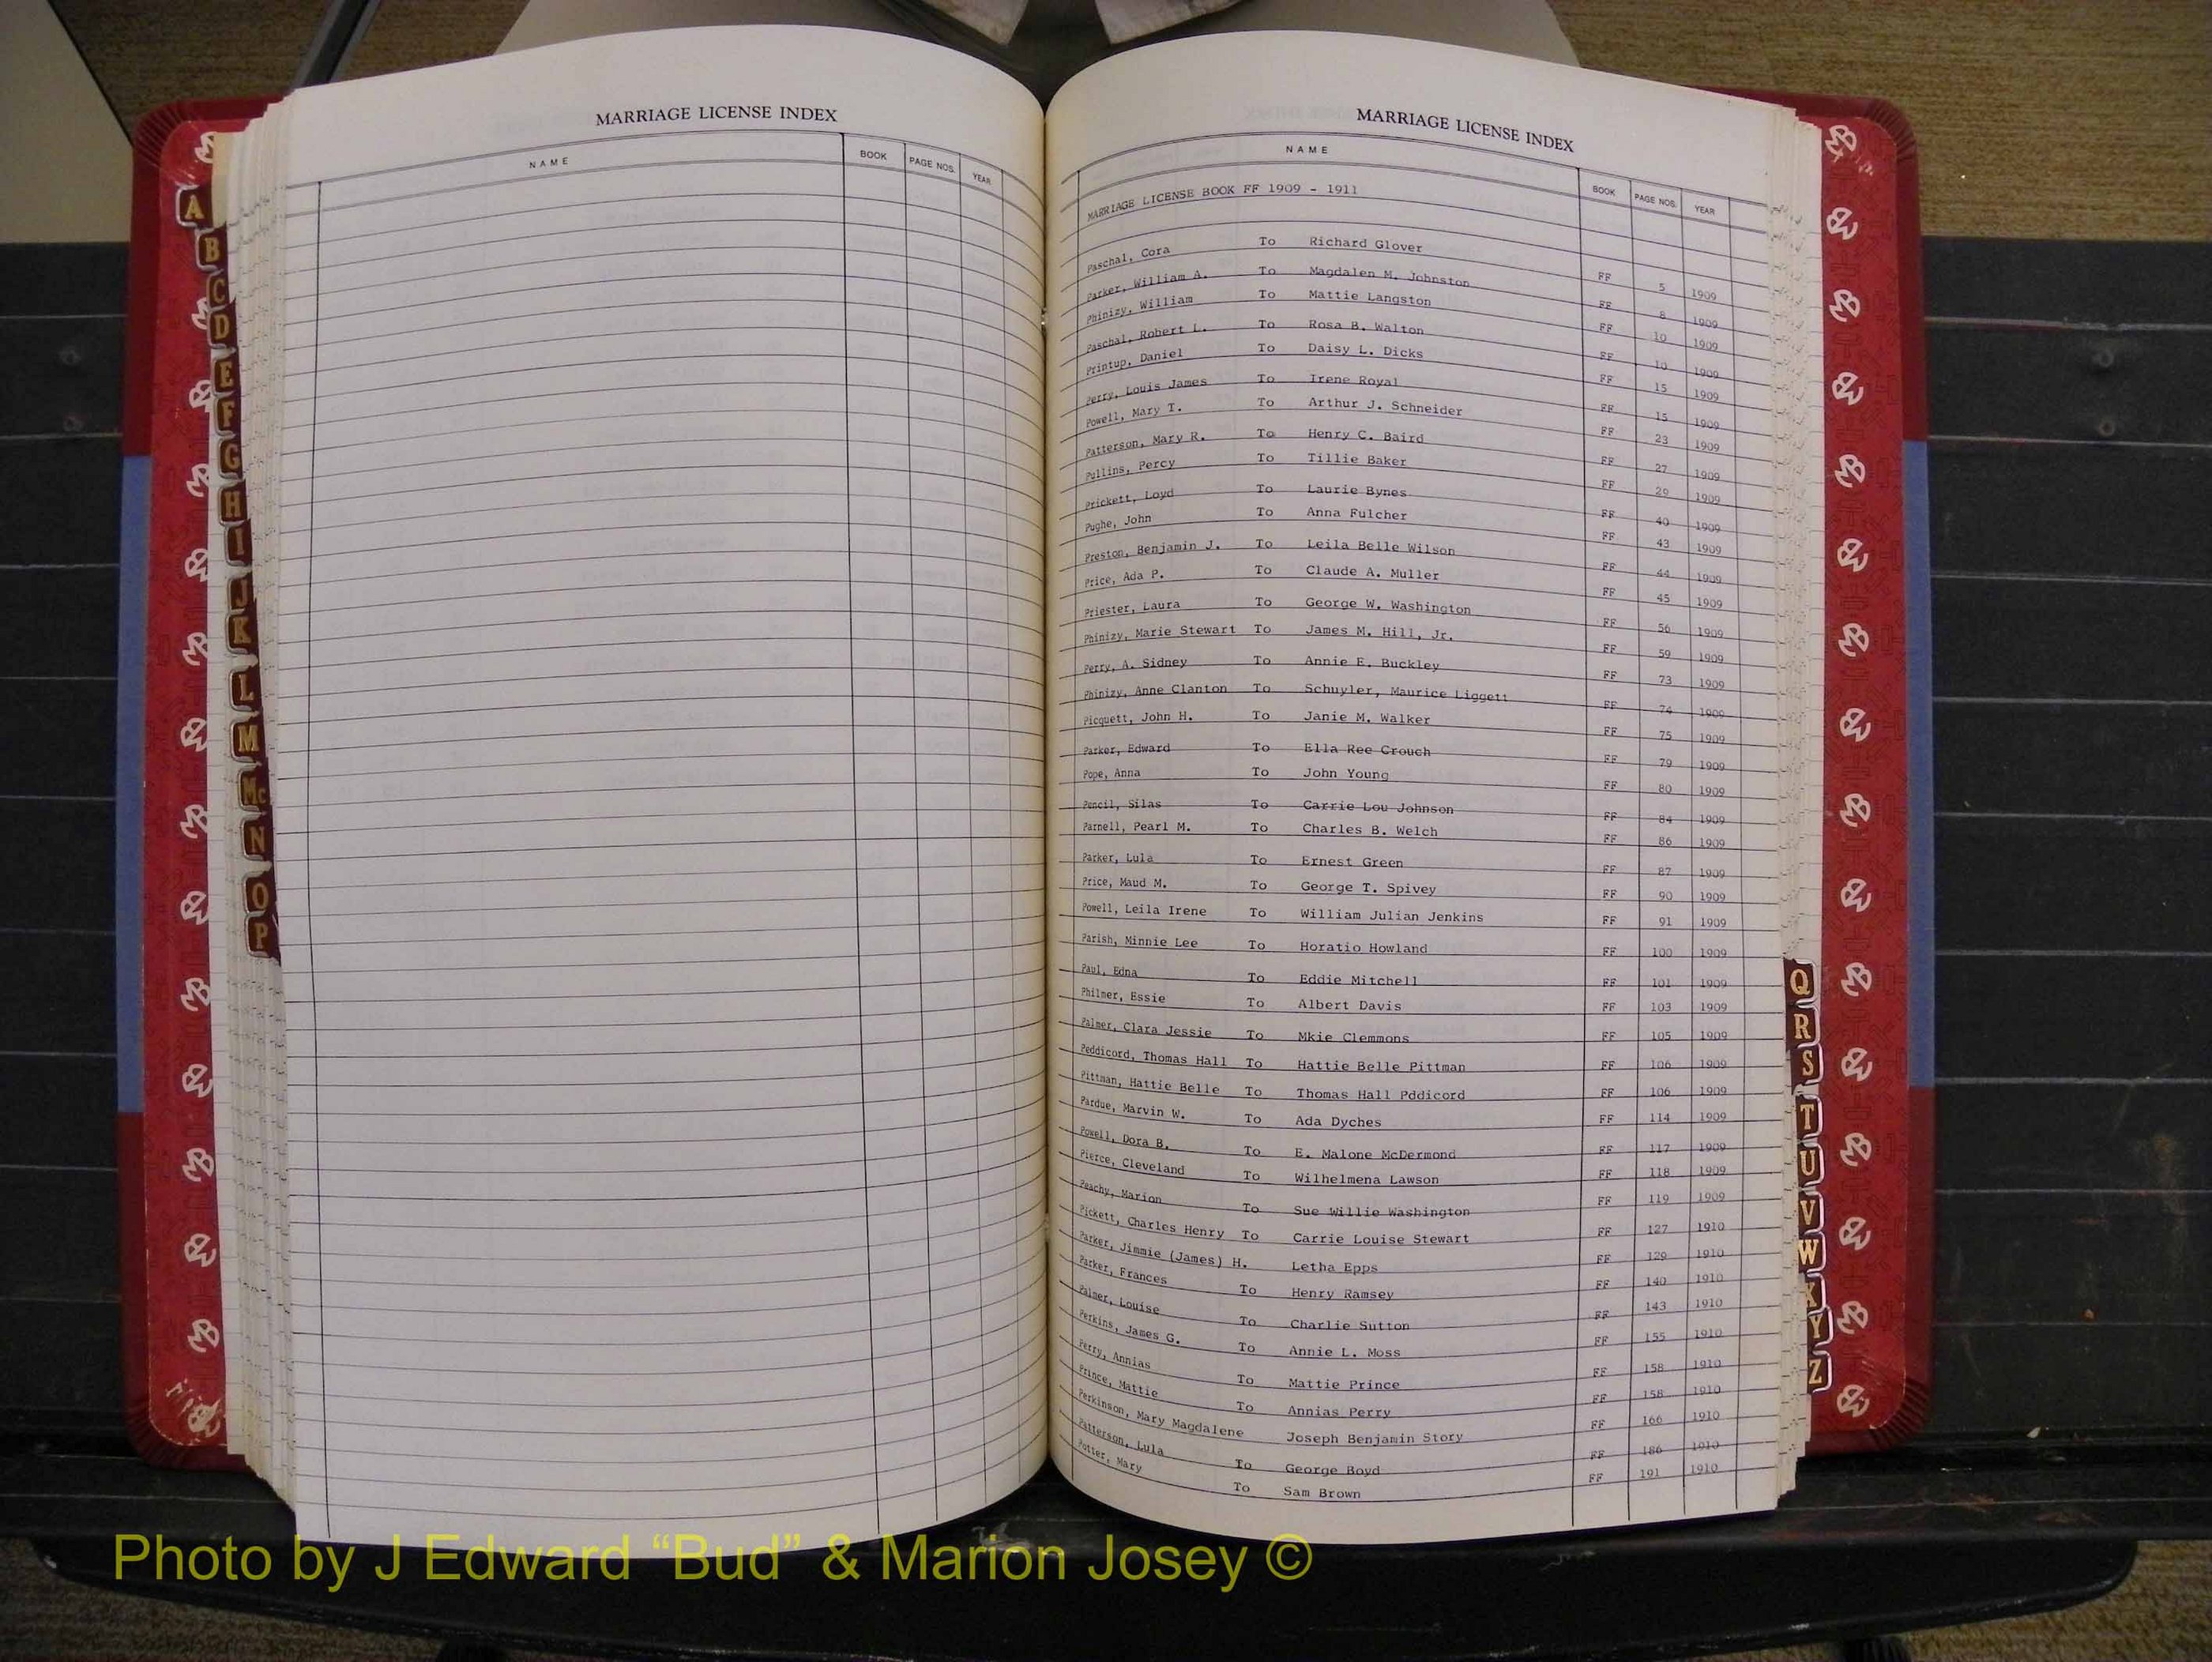 MARRIAGE LICENSE INDEX
NAME BOOK PAGE NOS. YEAR
A
B
C
D
E
F
G
H
I
J
K
L
M
Mc
N
O
P
MARRIAGE LICENSE INDEX
NAME BOOK PAGE NOS. YEAR
MARRIAGE LICENSE BOOK FF 1909 - 1911
Paschal, Cora To Richard Glover FF 5 1909
Parker, William A. To Magdalen M. Johnston FF 8 1909
Phinizy, William To Mattie Langston FF 10 1909
Paschal, Robert L. To Rosa B. Walton FF 10 1909
Printup, Daniel To Daisy L. Dicks FF 15 1909
Perry, Louis James To Irene Royal FF 15 1909
Powell, Mary T. To Arthur J. Schneider FF 23 1909
Patterson, Mary R. To Henry C. Baird FF 27 1909
Pullins, Percy To Tillie Baker FF 29 1909
Prickett, Loyd To Laurie Bynes FF 40 1909
Pughe, John To Anna Fulcher FF 43 1909
Preston, Benjamin J. To Leila Belle Wilson FF 44 1909
Price, Ada P. To Claude A. Muller FF 45 1909
Priester, Laura To George W. Washington FF 56 1909
Phinizy, Marie Stewart To James M. Hill, Jr. FF 59 1909
Perry, A. Sidney To Annie E. Buckley FF 73 1909
Phinizy, Anne Clanton To Schuyler, Maurice Liggett FF 74 1909
Picquett, John H. To Janie M. Walker FF 75 1909
Parker, Edward To Ella Ree Crouch FF 79 1909
Pope, Anna To John Young FF 80 1909
Pencil, Silas To Carrie Lou Johnson FF 84 1909
Parnell, Pearl M. To Charles B. Welch FF 86 1909
Parker, Lula To Ernest Green FF 87 1909
Price, Maud M. To George T. Spivey FF 90 1909
Powell, Leila Irene To William Julian Jenkins FF 91 1909
Parish, Minnie Lee To Horatio Howland FF 100 1909
Paul, Edna To Eddie Mitchell FF 101 1909
Philmer, Essie To Albert Davis FF 103 1909
Palmer, Clara Jessie To Mkie Clemmons FF 105 1909
Peddicord, Thomas Hall To Hattie Belle Pittman FF 106 1909
Pittman, Hattie Belle To Thomas Hall Pddicord FF 106 1909
Pardue, Marvin W. To Ada Dyches FF 114 1909
Powell, Dora B. To E. Malone McDermond FF 117 1909
Pierce, Cleveland To Wilhelmena Lawson FF 118 1909
Peachy, Marion To Sue Willie Washington FF 119 1909
Pickett, Charles Henry To Carrie Louise Stewart FF 127 1910
Parker, Jimmie (James) H. Letha Epps FF 129 1910
Parker, Frances To Henry Ramsey FF 140 1910
Palmer, Louise To Charlie Sutton FF 143 1910
Perkins, James G. To Annie L. Moss FF 155 1910
Perry, Annias To Mattie Prince FF 158 1910
Prince, Mattie To Annias Perry FF 158 1910
Perkinson, Mary Magdalene Joseph Benjamin Story FF 166 1910
Patterson, Lula To George Boyd FF 186 1910
Potter, Mary To Sam Brown FF 191 1910
Q
R
S
T
U
V
W
X
Y
Z
Photo by J Edward “Bud” & Marion Josey ©